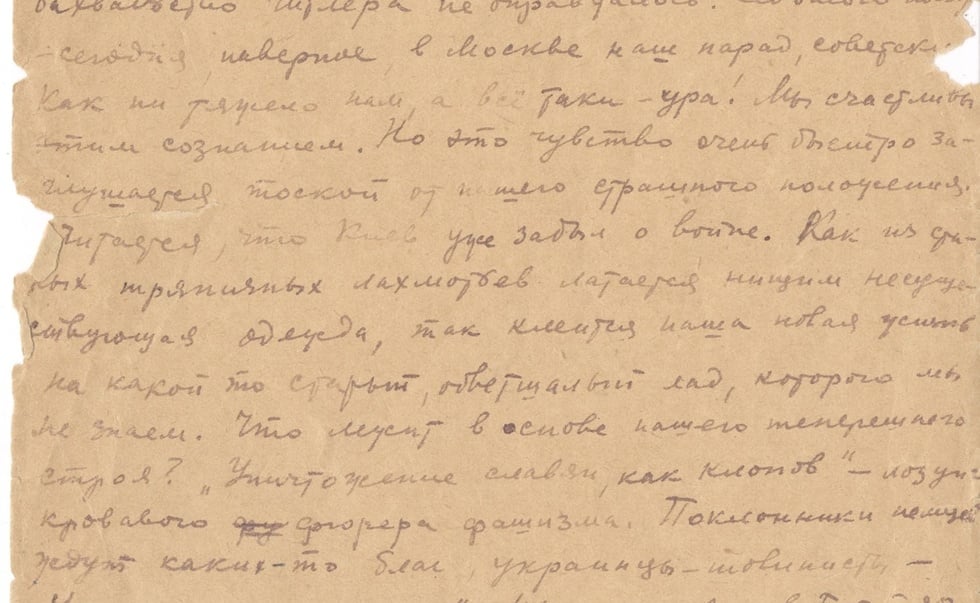 бахвальство Гитлера не оправдалось.
— сегодня, наверное, в Москве наш парад, советски
Как ни тяжело нам, а всё таки – ура! Мы счастливы
этим сознанием. Но это чувство очень быстро за-
глушается тоской от нашего страшного положения.
Читается, что Киев уже забыл о войне. Как из ста-
рых тряпичных лахмотьев латается нищим несуще-
ствующая одежда, так клеится наша новая жизнь
на какой то старый, обветшалый лад, которого мы
не знаем. Что лежит в основе нашего теперешнего
строя? „Уничтожение славян, как клопов" – лозунг
кровавого фу фюрера фашизма. Поклонники немцев
ждут каких-то благ, украинцы-шовинисты –